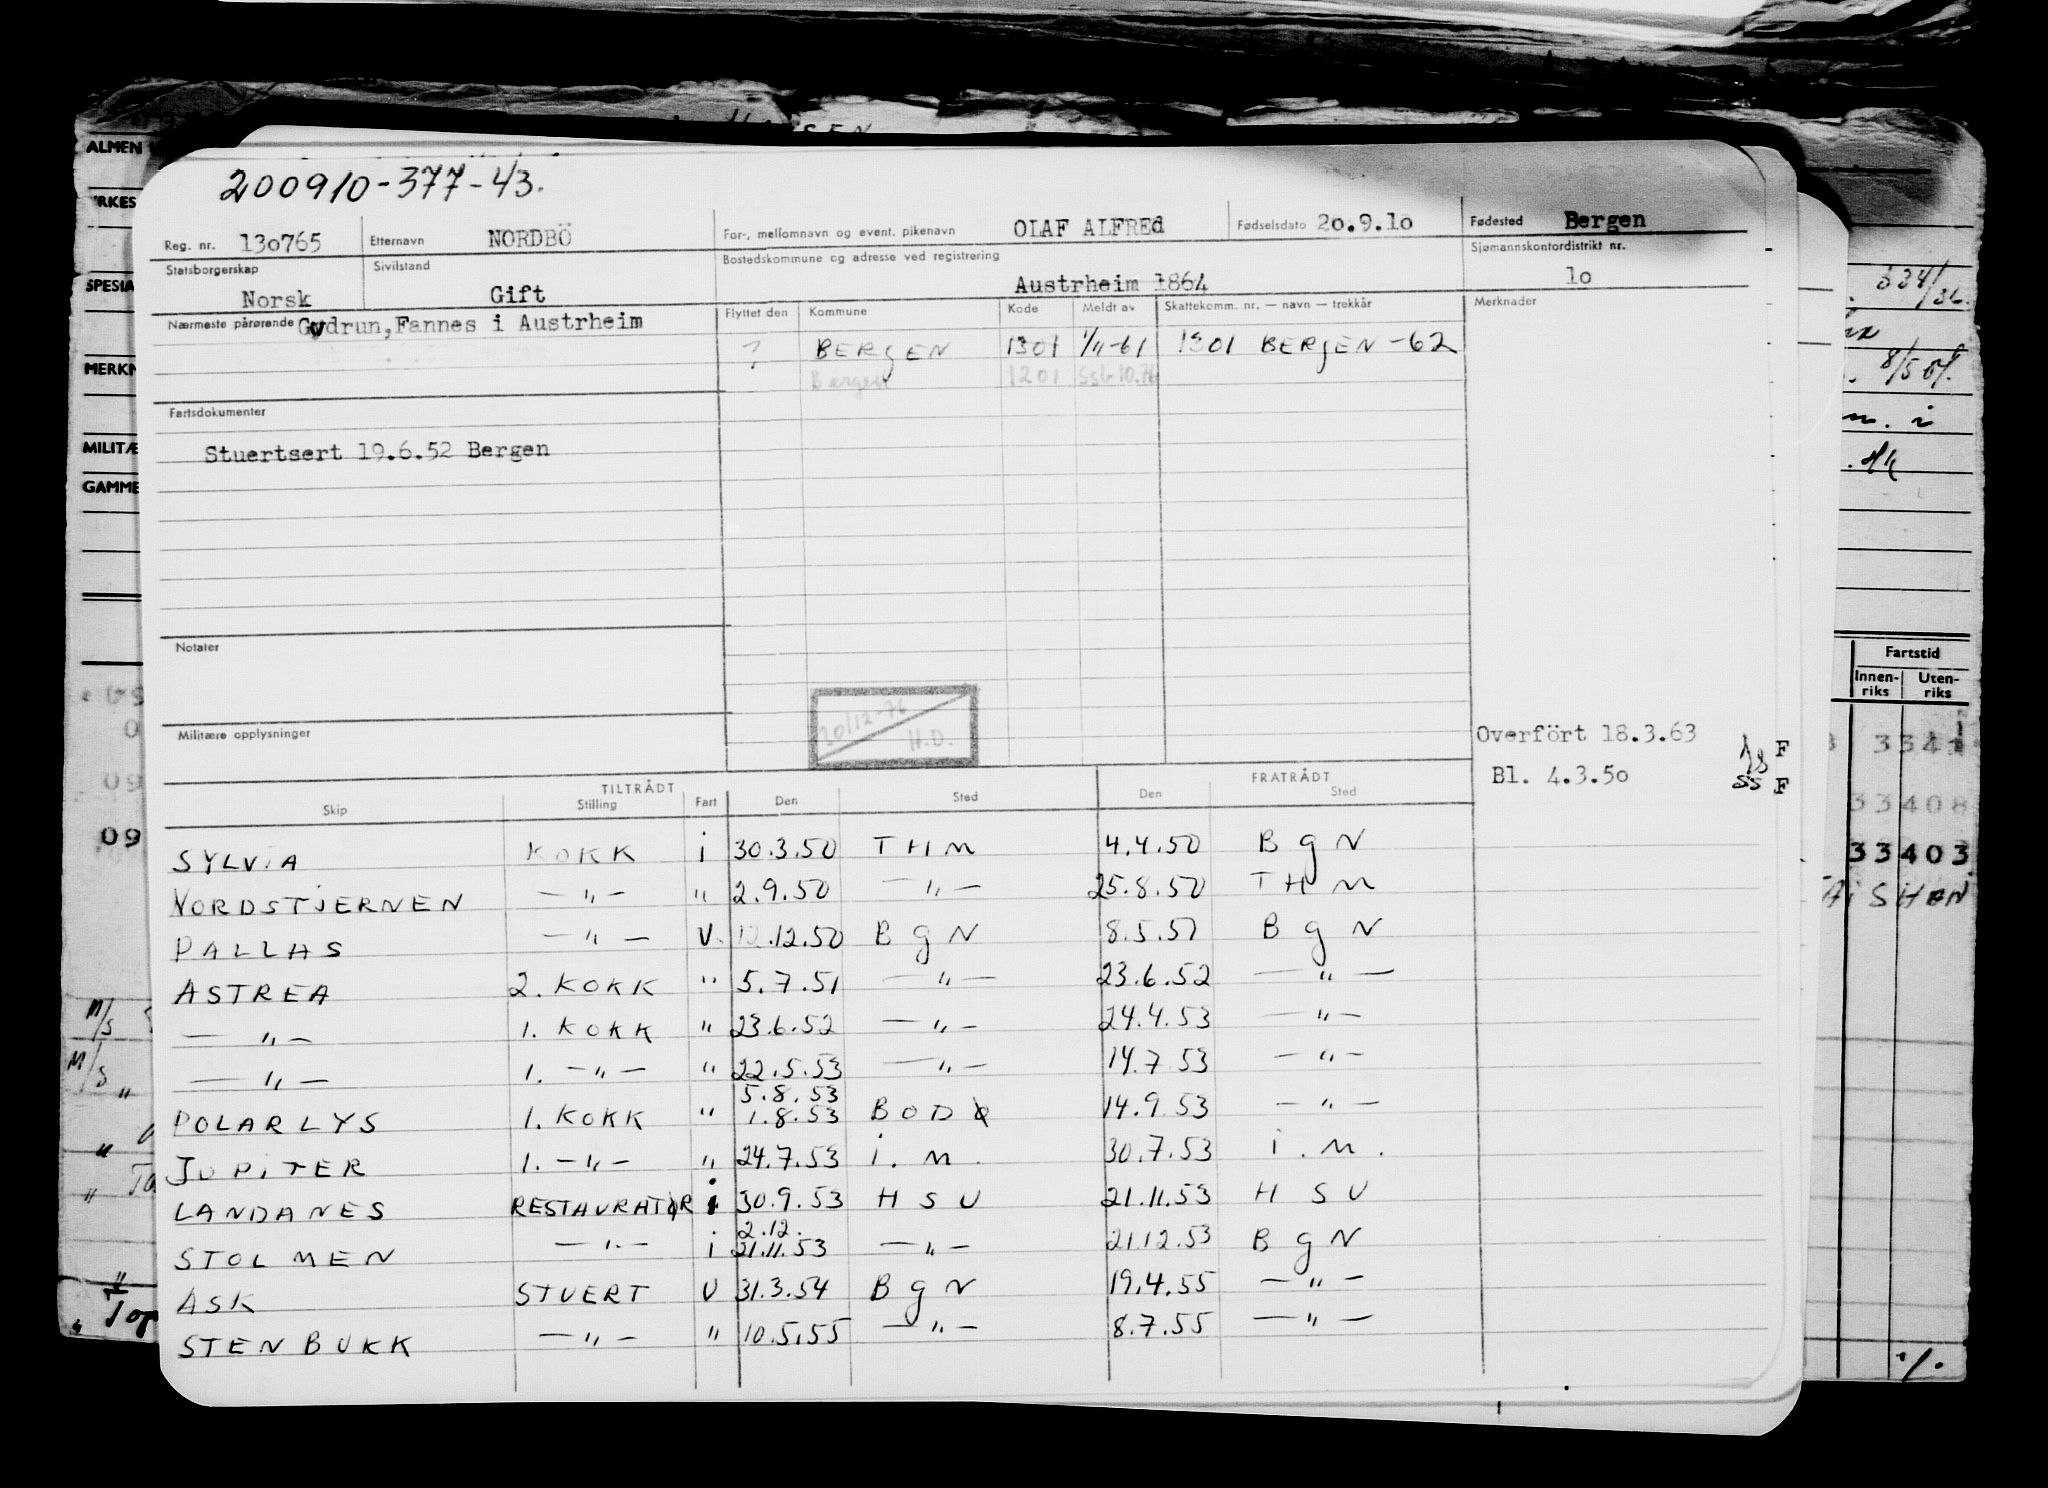 200910-377-43.
Reg. nr. 130765 Etternavn NORDBÖ For-, mellomnavn og event. pikenavn OLAF ALFREd Fødselsdato 20.9.10 Fødested Bergen
Statsborgerskap Norsk Sivilstand Gift Bostedskommune og adresse ved registrering Austrheim 1864 Sjømannskontordistrikt nr. 10
Nærmeste pårørende Gudrun, Fannes i Austrheim
Flyttet den Kommune Kode Meldt av Skattekomm. nr. — navn — trekkår Merknader
? BERGEN 1301 1/11-61 1301 BERGEN -62
Bergen 1201 Ssb 10.76
Fartsdokumenter
Stuertsert 19.6.52 Bergen
Notater
20/12-76
H.D.
Militære opplysninger
Overfört 18.3.63 F
Bl. 4.3.50 SS F
TILTRÅDT FRATRÅDT
Skip Stilling Fart Den Sted Den Sted
SYLViA KOKK i 30.3.50 THM 4.4.50 BgN
NORDSTjERNEN —"— " 2.9.50 —"— 25.8.50 THM
PALLAS —"— V. 12.12.50 BgN 8.5.51 BgN
ASTREA 2. KOKK " 5.7.51 —"— 23.6.52 —"—
—"— 1. KOKK " 23.6.52 —"— 24.4.53 —"—
—"— 1. —"— " 22.5.53 —"— 14.7.53 —"—
5.8.53
POLARLYS 1. KOKK " 1.8.53 BODØ 14.9.53 —"—
JUPiTER 1. —"— " 24.7.53 i.M. 30.7.53 i.M.
LANDANES RESTAURATØR i 30.9.53 HSU 21.11.53 HSU
2.12.
STOLMEN —"— i 21.11.53 —"— 21.12.53 BgN
ASK STUERT U 31.3.54 BgN 19.4.55 —"—
STENBUKK —"— " 10.5.55 —"— 8.7.55 —"—
ALMEN
RKES
SPESIA
MERKN
MILITÆ
GAMME
09
M/S
M/S
Fartstid
Innen-riks Uten-riks
33408
33403
8/5 51.
m. i